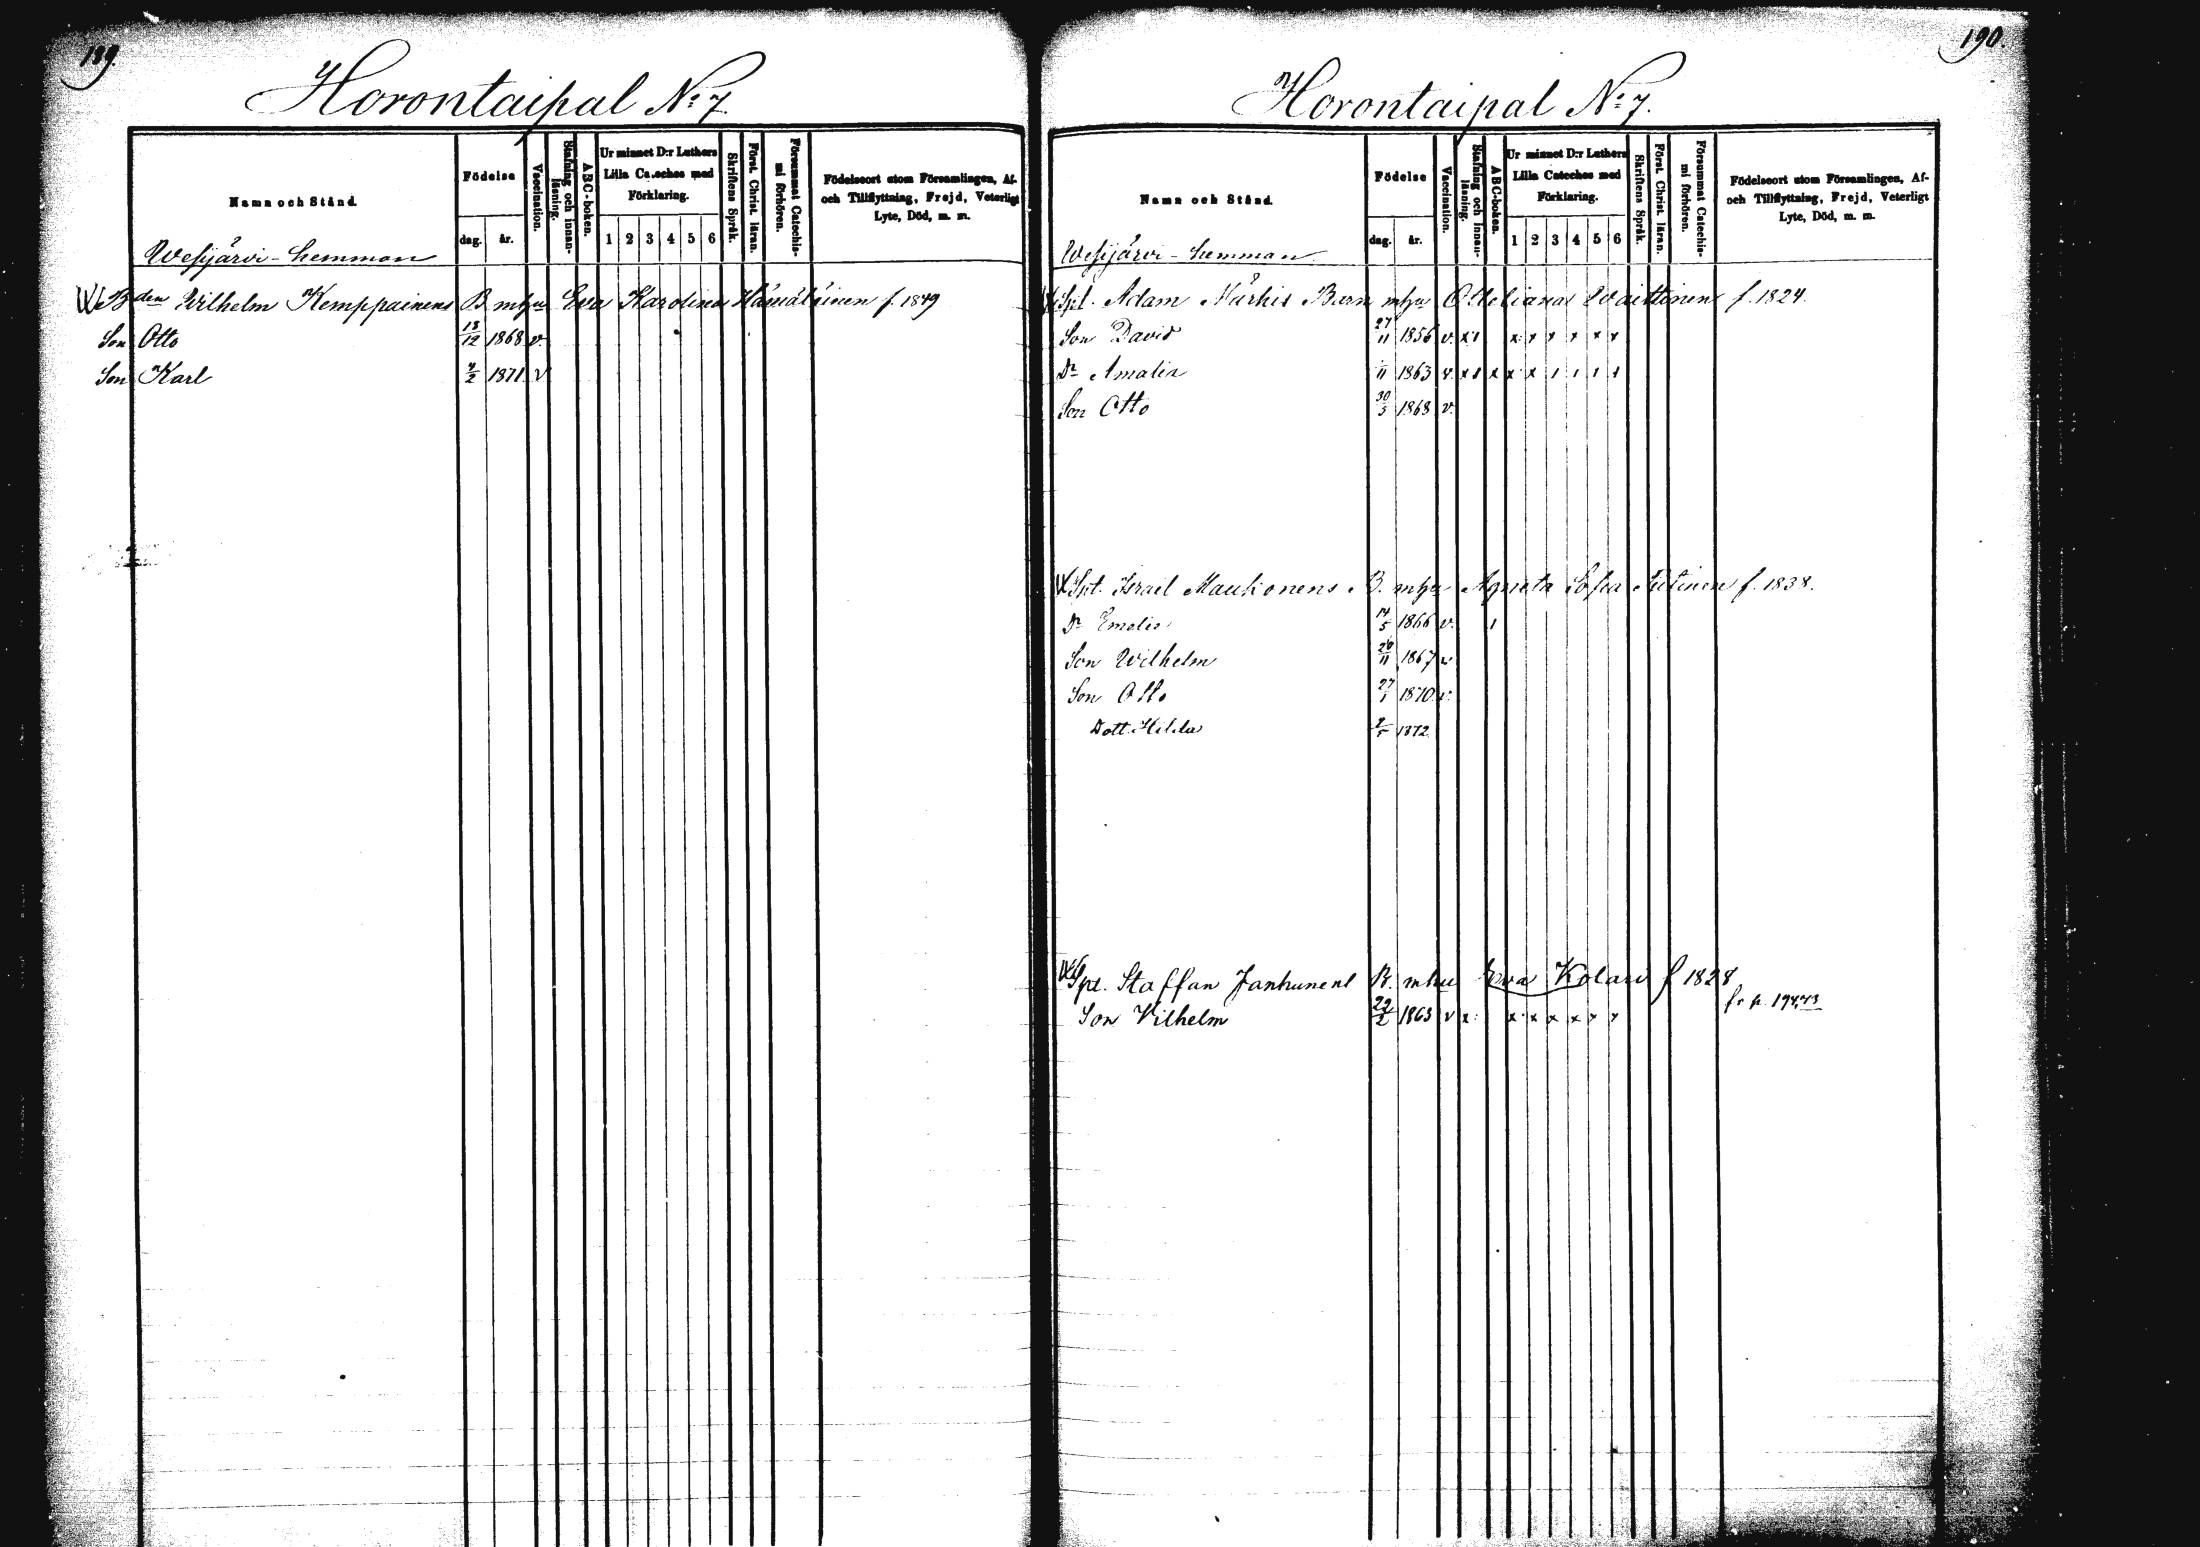 189.
Horontaipal No 7
Namn och Stånd.
Födelse
dag. år.
Vaccination.
Stafning och innan-läsning.
ABC-boken.
Ur minnet D:r Luthers Lilla Cateches med Förklaring.
1 2 3 4 5 6
Skriftens Språk.
Först. Christ. läran.
Försummat Catechis-mi förhören.
Födelseort utom Församlingen, Af- och Tillflyttning, Frejd, Veterligt Lyte, Död, m. m.
Wesijärvi - hemman
Bden Wilhelm Kemppainens B mhu Eva Karolina Hämäläinen f. 1849
Son Otto 13/12 1868 v.
Son Karl 4/2 1871 v
190.
Horontaipal No 7.
Namn och Stånd.
Födelse
dag. år.
Vaccination.
Stafning och innan-läsning.
ABC-boken.
Ur minnet D:r Luthers Lilla Cateches med Förklaring.
1 2 3 4 5 6
Skriftens Språk.
Först. Christ. läran.
Försummat Catechis-mi förhören.
Födelseort utom Församlingen, Af- och Tillflyttning, Frejd, Veterligt Lyte, Död, m. m.
Wesijärvi - hemman
Spt. Adam Märkis Barn mhu Ottoliana Waittinen f. 1824.
Son David 27/11 1856 v. x x x x x x x
Dr Amalia 1863 v. x x x x
Son Otto 30/3 1868 v.
Spt. Israil Maukonens B. mhu Agneta Sofia f. 1838.
Dr Emalia 14/5 1866 v.
Son Wilhelm 1867 v
Son Otto 27/1 1870. v.
Dott. Hilda 1872
Spt. Staffan Janhunens B. mhu Eva Kolari f 1828
Son Vilhelm 22/2 1863 v x x x x x x x fr p. 194.73